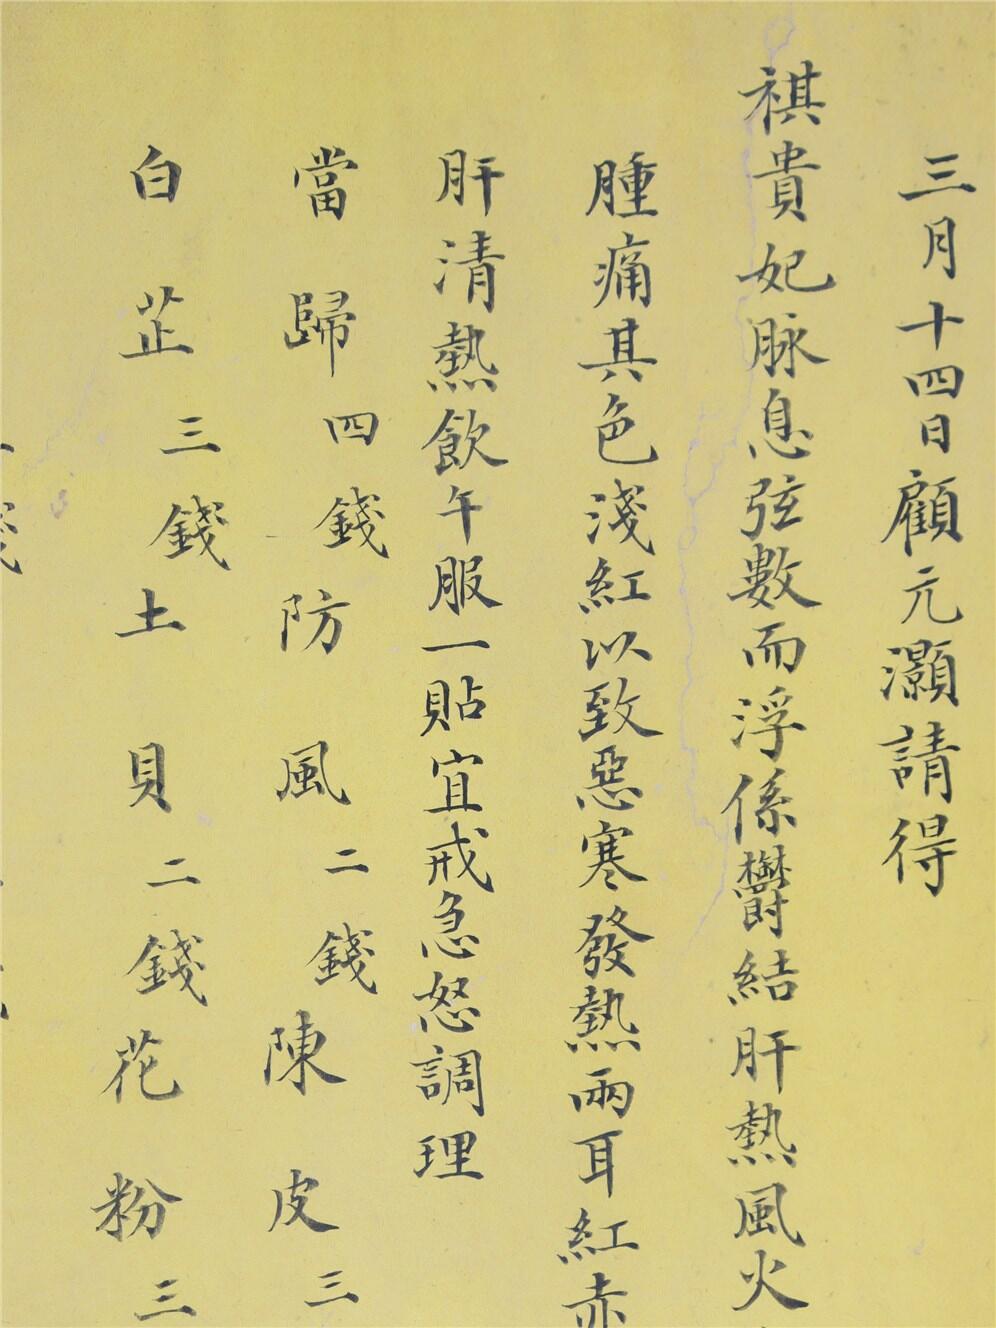 三月十四日顧元灝請得
祺貴妃脉息弦數而浮係鬱結肝熱風火
腫痛其色淺紅以致惡寒發熱兩耳紅赤
肝清熱飲午服一貼宜戒急怒調理
當歸四錢防風二錢陳皮三
白芷三錢土貝二錢花粉三